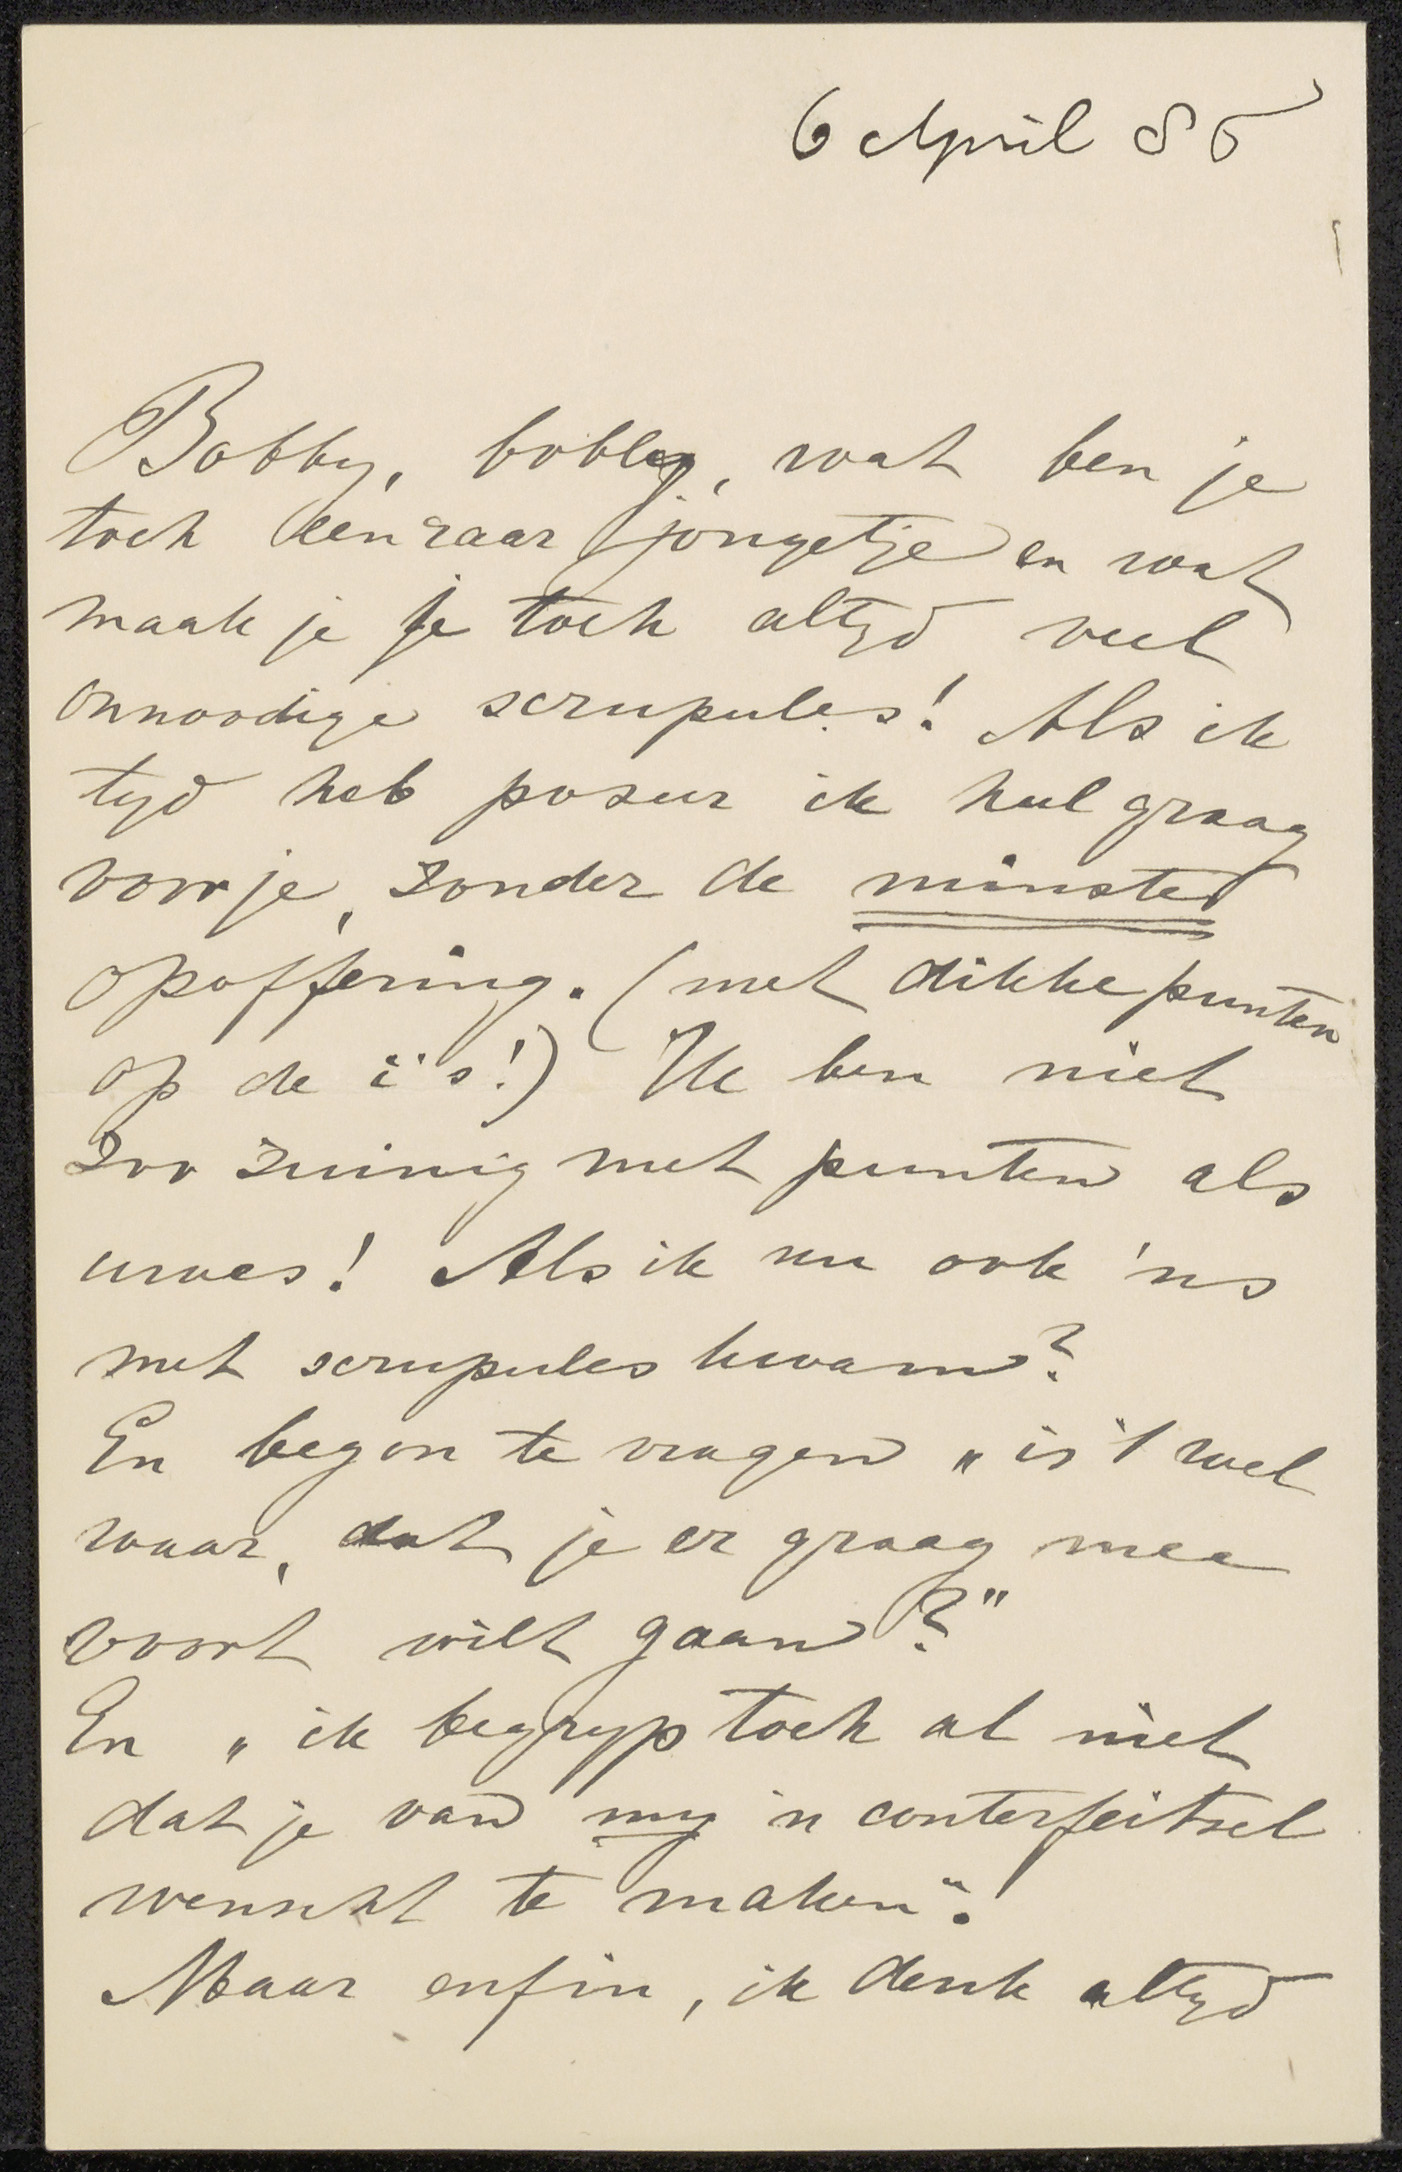 6 April 85
Bobby, bobby, wat ben je
toch een raar jongetje en wat
maak je je toch altyd veel
onnoodige scrupules! Als ik
tyd heb poseer ik heel graag
voor je, zonder de minste
opoffering. (met dikke punten
op de i's!) Ik ben niet
zoo zuinig met punten als
uwes! Als ik nu ook 'ns
met scrupules kwam?
En begon te vragen „is 't wel
waar, dat je er graag mee
voort wilt gaan?"
En „ik begryp toch al niet
dat je van my 'n conterfeitsel
wenscht te maken"!
Maar enfin, ik denk altyd